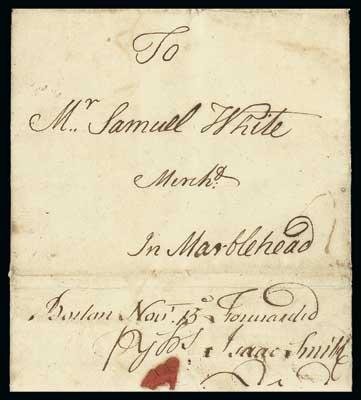 To
Mr. Samuel White
Mercht.
In Marblehead
Boston Novr. 15 Forwarded
Isaac Smith